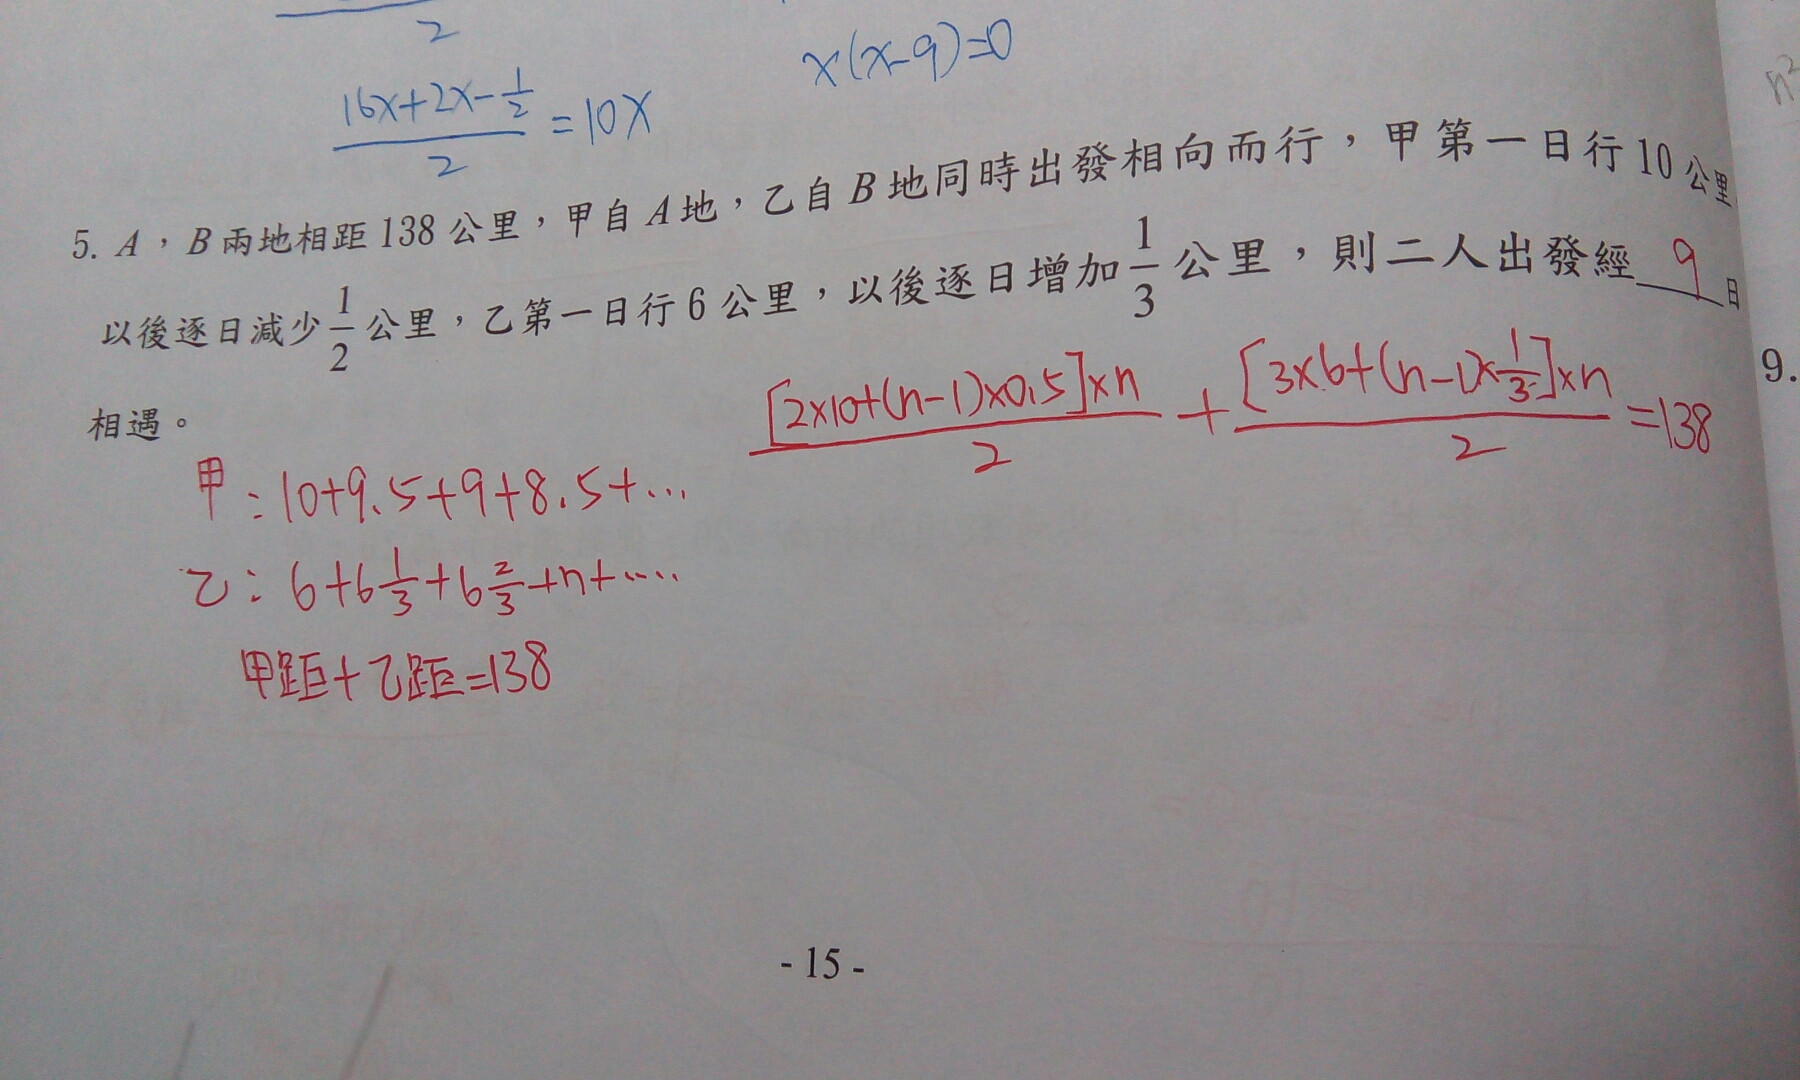 2
x(x-9)=0
n²
(16x+2x-1/2)/2 = 10x
5. A，B兩地相距138公里，甲自A地，乙自B地同時出發相向而行，甲第一日行10公里
以後逐日減少1/2公里，乙第一日行6公里，以後逐日增加1/3公里，則二人出發經 9 日
相遇。
9.
[2×10+(n-1)×0.5]×n/2 + [3×6+(n-1)×1/3]×n/2 =138
甲:10+9.5+9+8.5+...
乙: 6+6 1/3+6 2/3+n+....
甲距+乙距=138
- 15 -